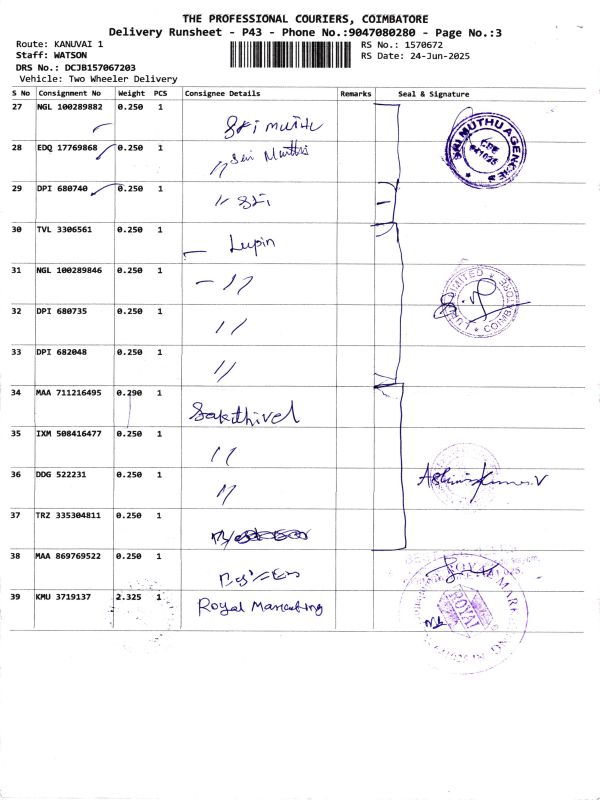 THE PROFESSIONAL COURIERS, COIMBATORE
Delivery Runsheet - P43 - Phone No.:9047080280 - Page No.:3
Route: KANUVAI 1 RS No.: 1570672
Staff: WATSON RS Date: 24-Jun-2025
DRS No.: DCJB157067203
Vehicle: Two Wheeler Delivery
S No Consignment No Weight PCS Consignee Details Remarks Seal & Signature
27 NGL 100289882 0.250 1 Sri Muthu SRI MUTHU AGENCIES CBE 641025
28 EDQ 17769868 0.250 1 " Sri Muthu
29 DPI 680740 0.250 1 " Sri
30 TVL 3306561 0.250 1 Lupin
31 NGL 100289846 0.250 1 — " LUPIN LIMITED * COIMBATORE
32 DPI 680735 0.250 1 "
33 DPI 682048 0.250 1 "
34 MAA 711216495 0.290 1 Sakthivel
35 IXM 508416477 0.250 1 "
36 DDG 522231 0.250 1 "
37 TRZ 335304811 0.250 1
38 MAA 869769522 0.250 1
39 KMU 3719137 2.325 1 Royal Marketing ROYAL